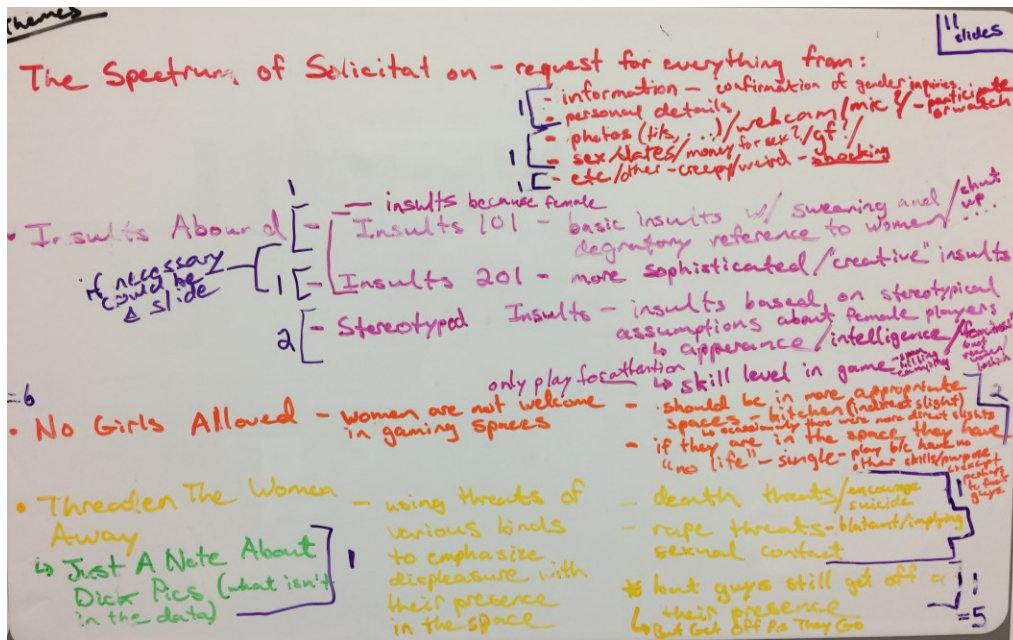 Themes
11 slides
The Spectrum of Solicitat on - request for everything from:
1 - information - confirmation of gender inquiries
- personal details
1 - photos (tits, ...)/webcam/mic?/ - participate or watch
- sex/dates/money for sex?/gf?/
1 - etc/other - creepy/weird - shocking
1
- insults because female
• Insults Abound - Insults 101 - basic insults w/ swearing and / shut up ....
degratory reference to women
if necessary could be a slide
1 - Insults 201 - more sophisticated/"creative" insults
2 - Stereotyped Insults - insults based on stereotypical
assumptions about female players
↳ apperance/intelligence/
only play for attention ↳ skill level in game - camping
=6
• No Girls Allowed - women are not welcome
in gaming spaces
- should be in more appropriate
spaces - kitchen (indirect slight)
↳ occasionally there were more direct slights
- if they are in the space they have
"no life" - single - play b/c have no
other skills/purpose
except perhaps to guys
2
• Threaden The Women
Away
- using threats of
various kinds
to emphasize
displeasure with
their presence
in the space
- death threats/encourage
suicide
1
- rape threats - blatant/implying
sexual contact
↳ Just A Note About
Dick Pics (what isn't
in the data)
1
* but guys still get off
their presence
↳ But Get Off As They Go
1
=5